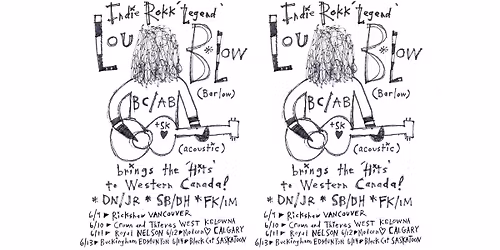 Indie Rokk 'Legend'
Lou B*Low
(Barlow)
BC/AB
+SK
(acoustic)
brings the 'Hits'
to Western Canada!
* DN/JR * SB/DH * FK/IM
6/9 ► Rickshaw VANCOUVER
6/10 ► Crown and Thieves WEST KELOWNA
6/11 ► Royal NELSON 6/12 ► CALGARY
6/13 ► Buckingham EDMONTON 6/14 ► Black Cat SASKATOON
Indie Rokk 'Legend'
Lou B*Low
(Barlow)
BC/AB
+SK
(acoustic)
brings the 'Hits'
to Western Canada!
* DN/JR * SB/DH * FK/IM
6/9 ► Rickshaw VANCOUVER
6/10 ► Crown and Thieves WEST KELOWNA
6/11 ► Royal NELSON 6/12 ► CALGARY
6/13 ► Buckingham EDMONTON 6/14 ► Black Cat SASKATOON